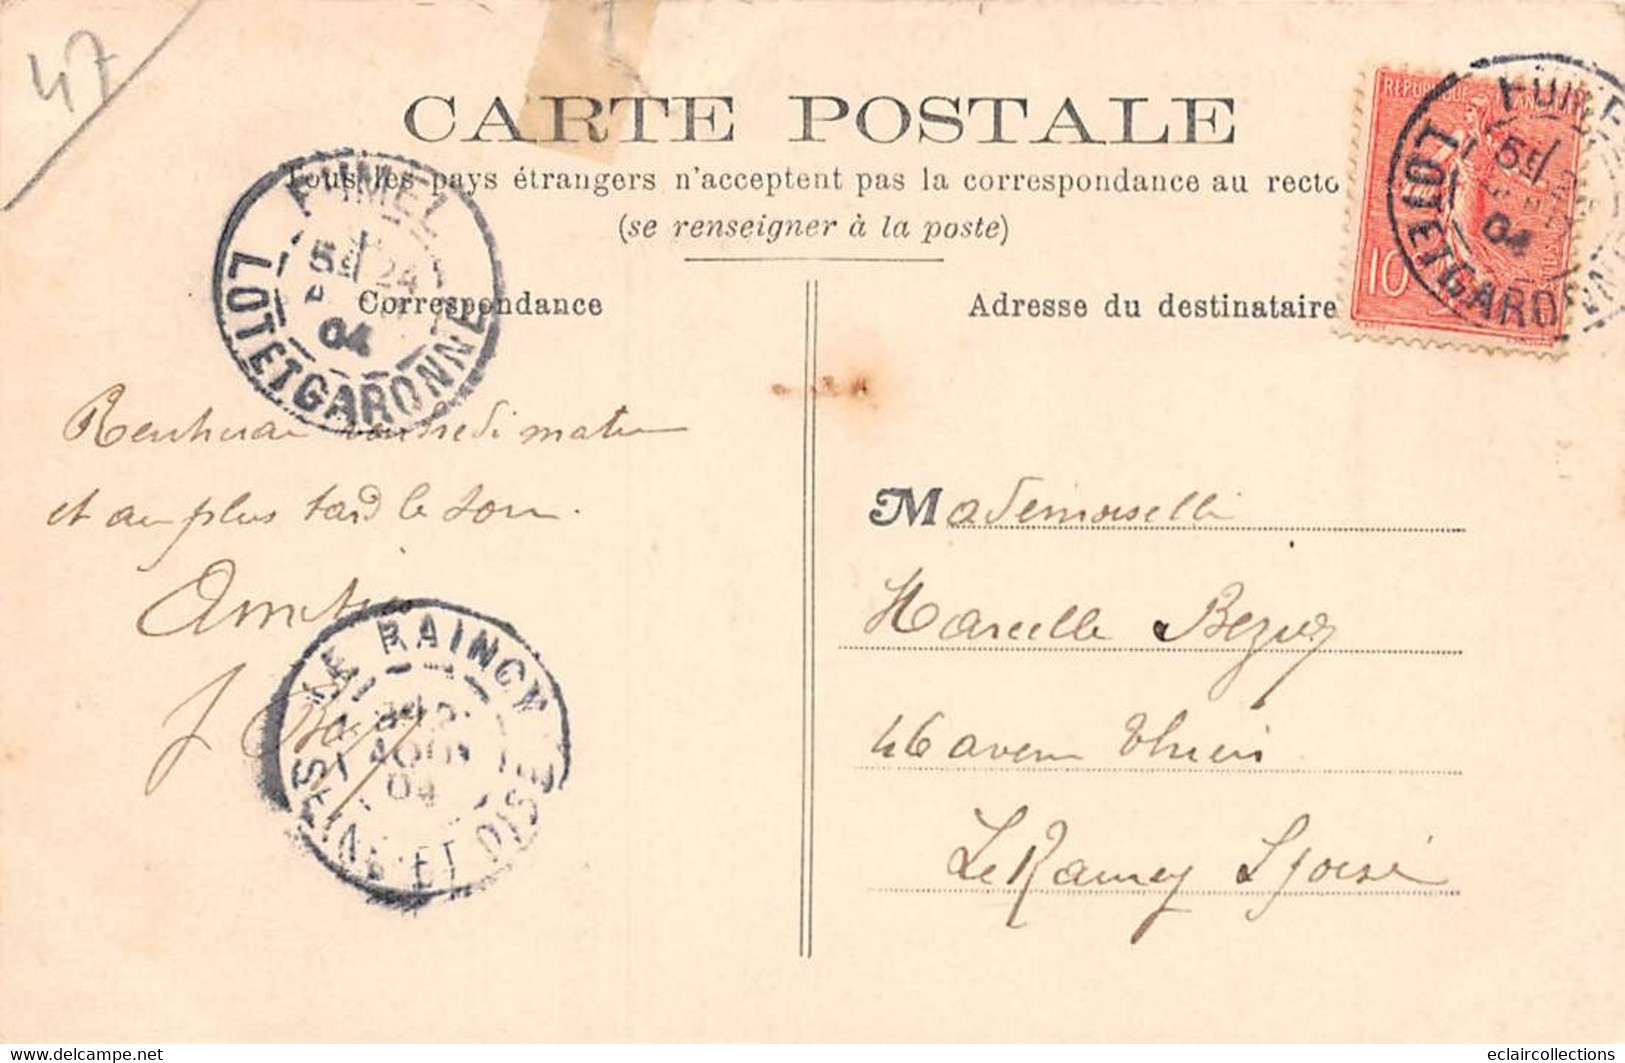 47
CARTE POSTALE
Tous les pays étrangers n'acceptent pas la correspondance au recto
(se renseigner à la poste)
Correspondance
Adresse du destinataire
FUMEL
5E 24
04
LOT ET GARONNE
REPUBLIQUE
10
FUMEL
5E
04
LOT ET GARONNE
vendredi matin
et au plus tard le soir.
LE RAINCY
AOUT
04
SEINE ET OISE
Mademoiselle
Marcelle
46 avenue Thiers
Le Raincy S et oise
eclaircollections